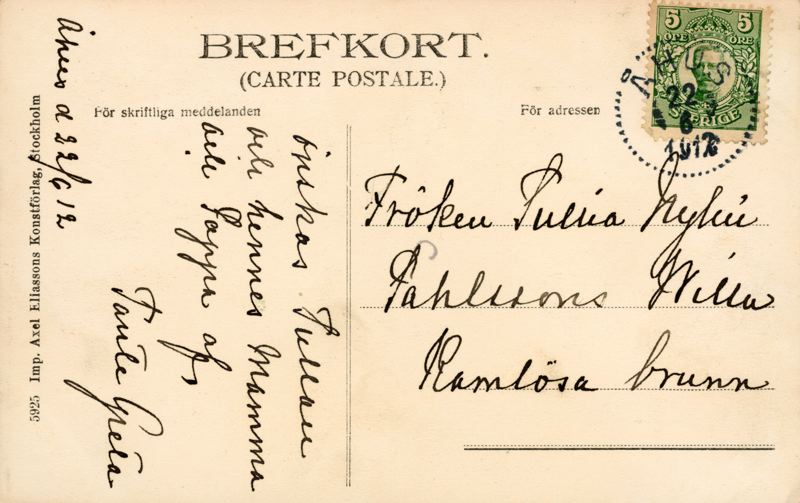 BREFKORT.
(CARTE POSTALE.)
För skriftliga meddelanden
För adressen
5 5
ÖRE ÖRE
SVERIGE
ÅHUS
22
6
1912
Åhus d 22/6 12
önskas Tullan
och hennes Mamma
och Pappa af
Tante Greta
Fröken Tullia Nylin
Påhlssons Villa
Ramlösa brunn
5925 Imp. Axel Eliassons Konstförlag, Stockholm